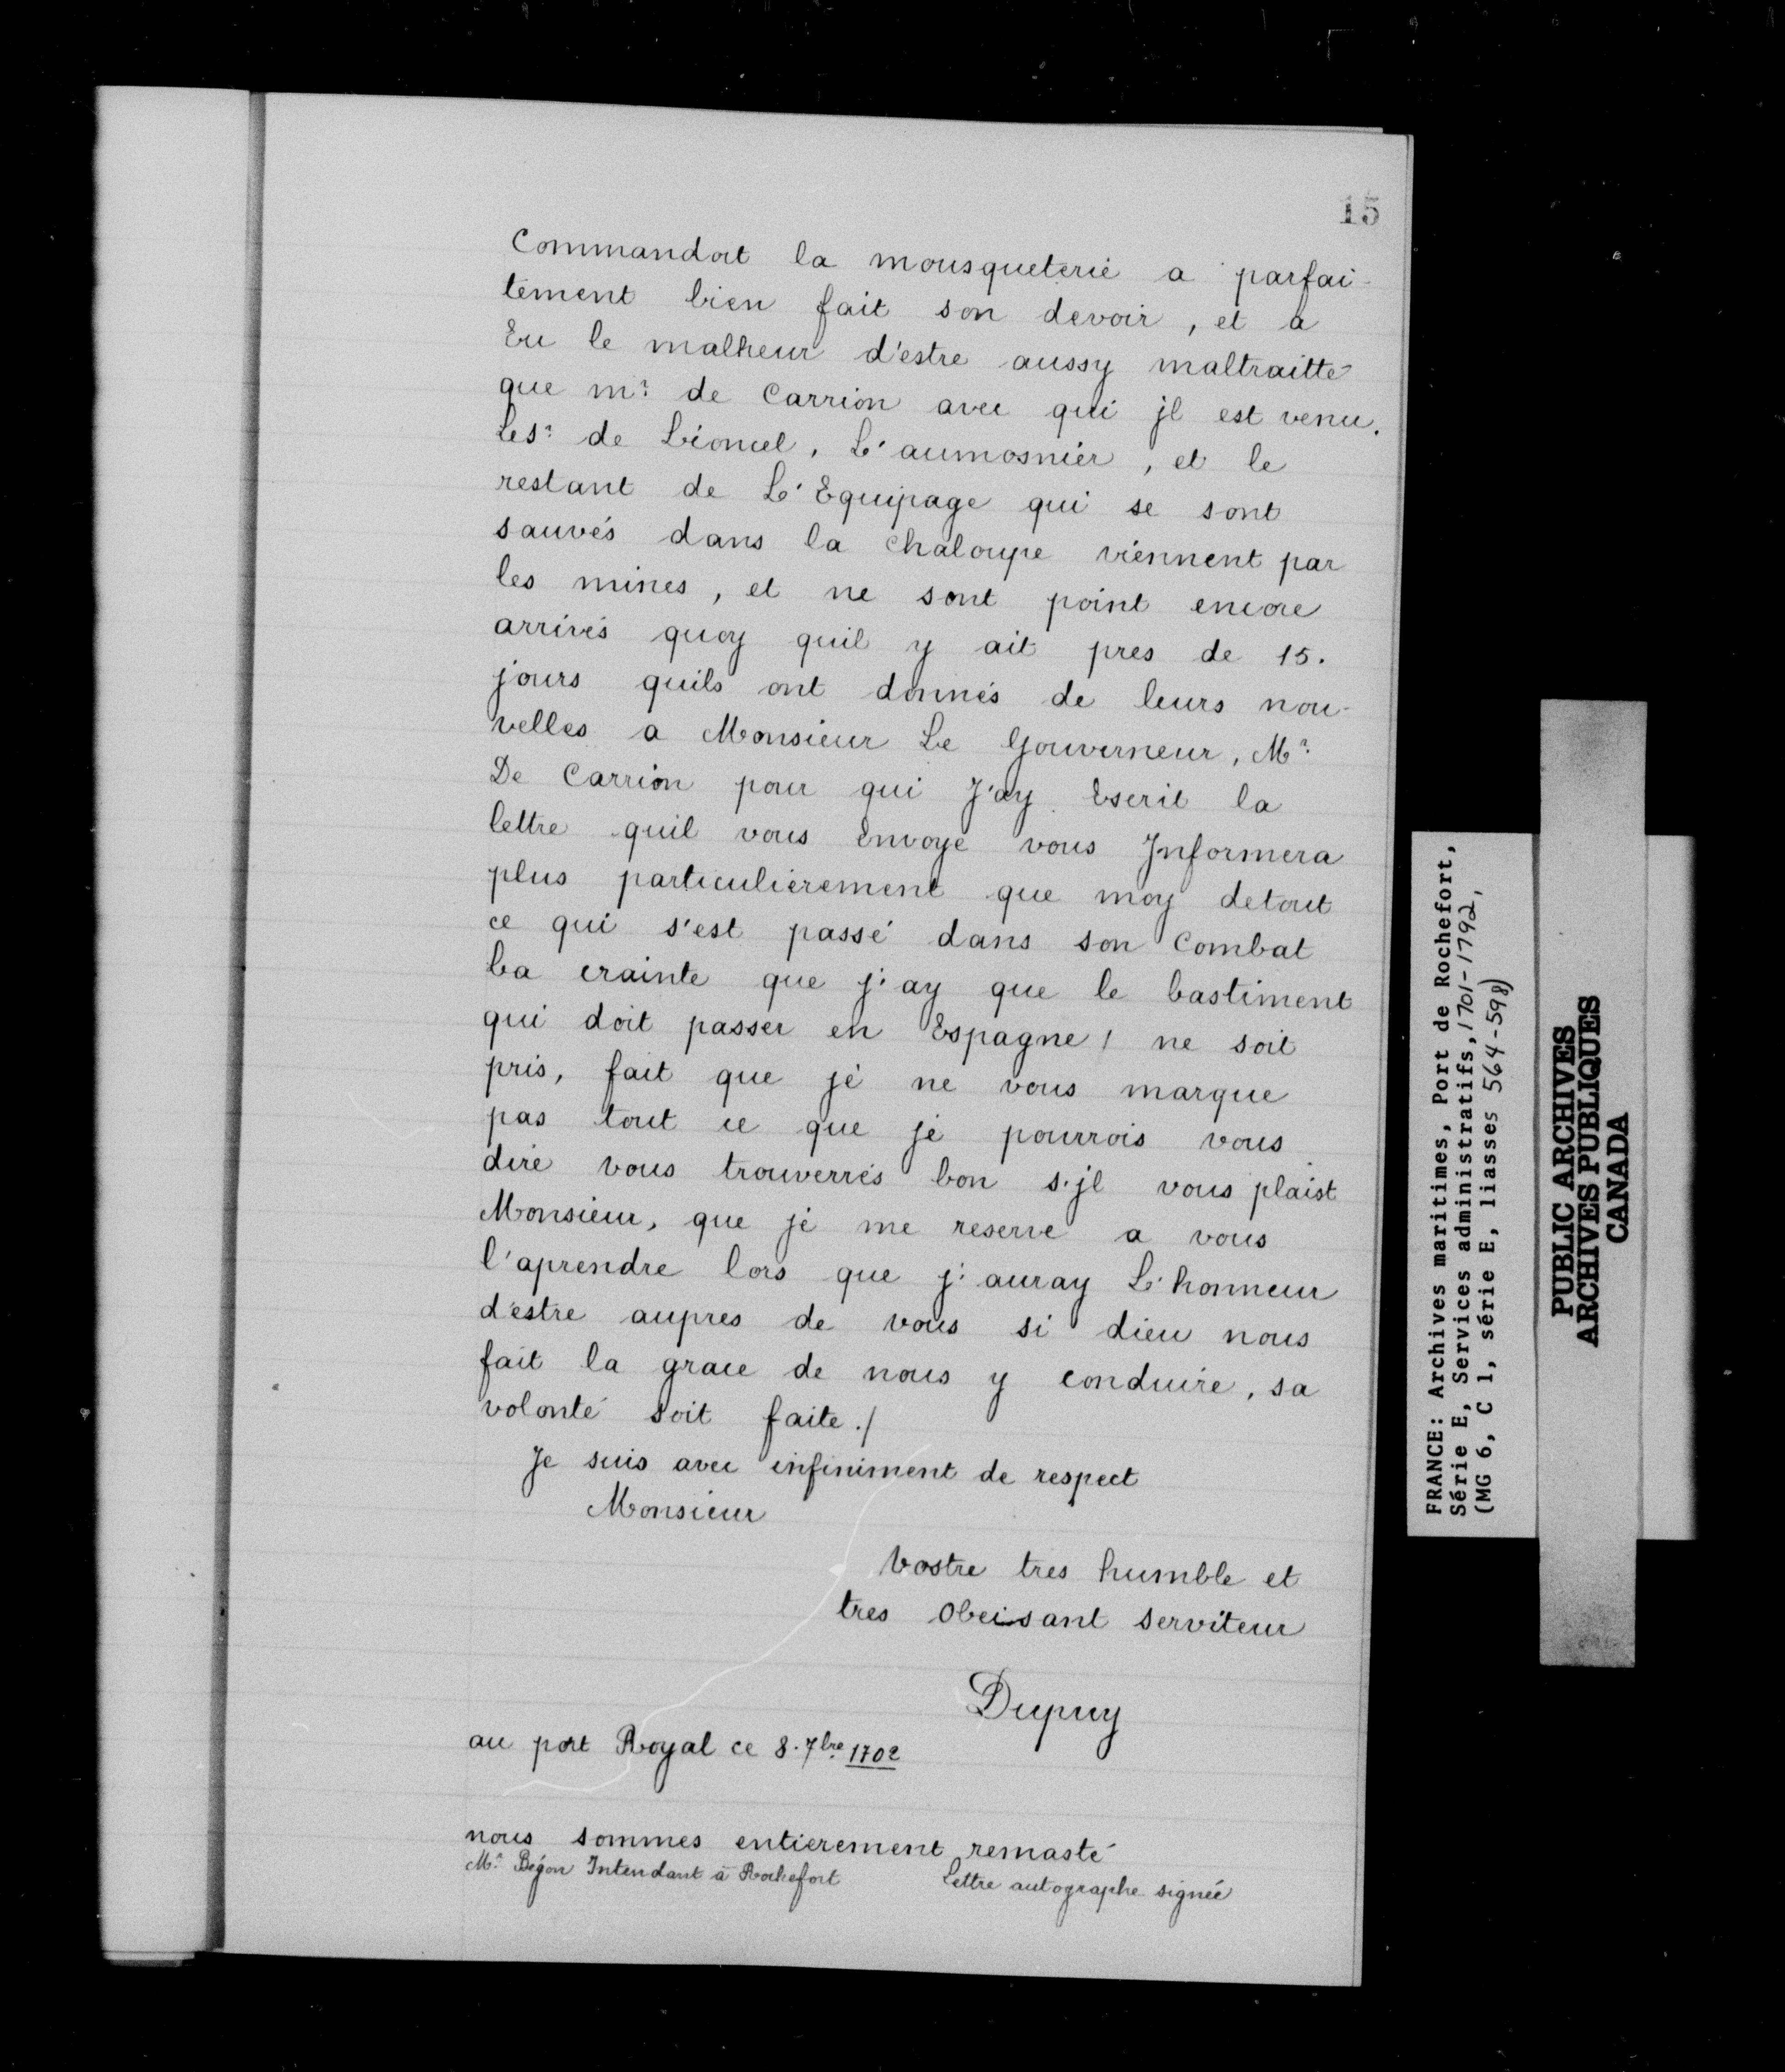 15
Commandoit la mousqueterie a parfai-
tement bien fait son devoir, et a
Eu le malheur d'estre aussy maltraitté
que mr. de Carrion avec qui jl est venu.
Les.r de Lioncel, L'aumosnier, et le
restant de L'Equipage qui se sont
sauvés dans la chaloupe viennent par
les mines, et ne sont point encore
arrivés quoy quil y ait pres de 15.
jours quils ont donnés de leurs nou-
velles a Monsieur Le Gouverneur, Mr.
De Carrion pour qui J'ay Escrit la
lettre quil vous Envoye vous Jnformera
plus particulierement que moy detout
ce qui s'est passé dans son Combat
La crainte que j'ay que le bastiment
qui doit passer en Espagne / ne soit
pris, fait que je ne vous marque
pas tout ce que je pourrois vous
dire vous trouverrés bon s'jl vous plaist
Monsieur, que je me reserve a vous
l'aprendre lors que j'auray L'honneur
d'estre aupres de vous si dieu nous
fait la grace de nous y conduire, sa
volonté soit faite./
Je suis avec infiniment de respect
Monsieur
Vostre tres humble et
tres Obeissant serviteur
Dupuy
au port Royal ce 8. 7bre 1702
nous sommes entierement remasté
Mr. Bégon Intendant à Rochefort Lettre autographe signée
FRANCE: Archives maritimes, Port de Rochefort,
Série E, Services administratifs, 1701-1792,
(MG 6, C 1, série E, liasses 564-598)
PUBLIC ARCHIVES
ARCHIVES PUBLIQUES
CANADA